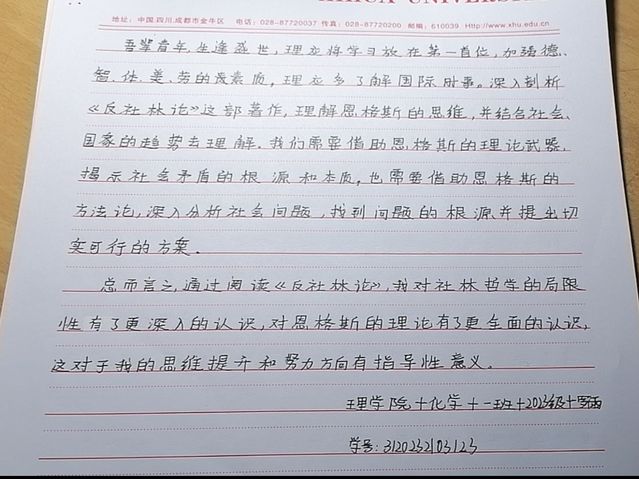 XIHUA UNIVERSITY
地址：中国.四川.成都市金牛区 电话：028-87720037 传真：028-87720200 邮编：610039 Http://www.xhu.edu.cn
吾辈青年，生逢盛世，理应将学习放在第一首位，加强德、
智、体、美、劳的良素质，理应多了解国际时事。深入剖析
《反杜林论》这部著作，理解恩格斯的思维，并结合社会、
国家的趋势去理解。我们需要借助恩格斯的理论武器，
揭示社会矛盾的根源和本质，也需要借助恩格斯的
方法论，深入分析社会问题，找到问题的根源并提出切
实可行的方案。
总而言之，通过阅读《反杜林论》，我对杜林哲学的局限
性有了更深入的认识，对恩格斯的理论有了更全面的认识，
这对于我的思维提升和努力方向有指导性意义。
理学院+化学+一班+2023级+
学号：3120232103123